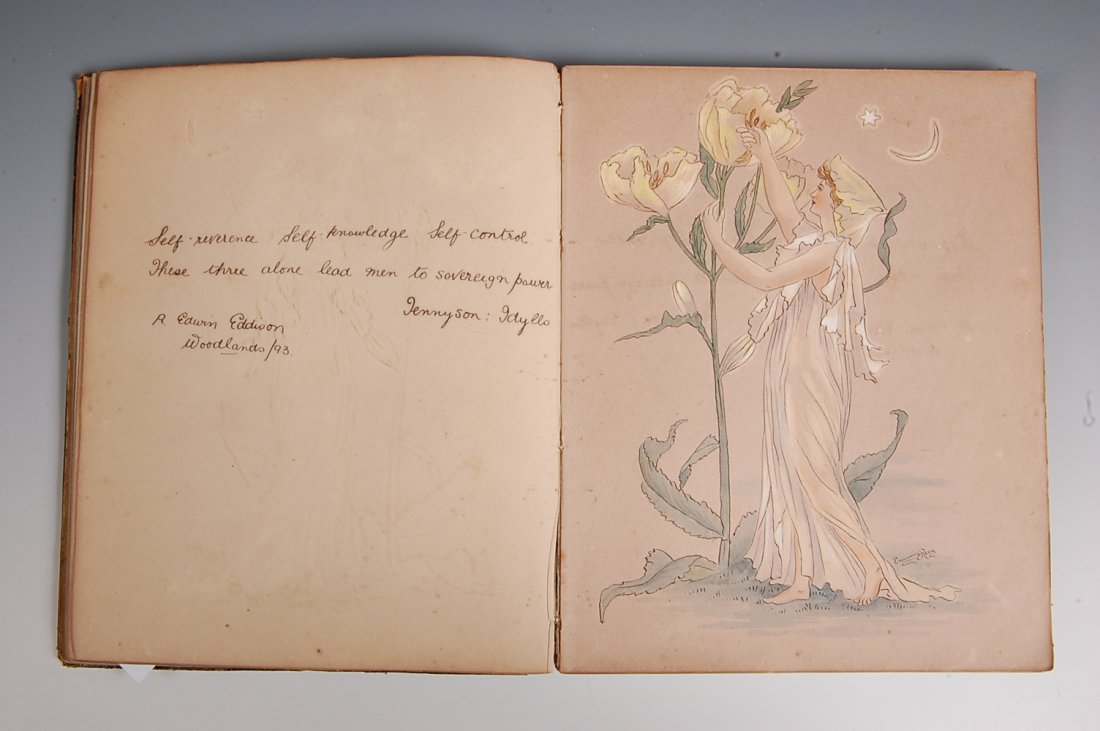 Self-reverence Self-knowledge Self-control
These three alone lead men to sovereign power
Tennyson: Idylls
A Edwin Eddison
Woodlands/93